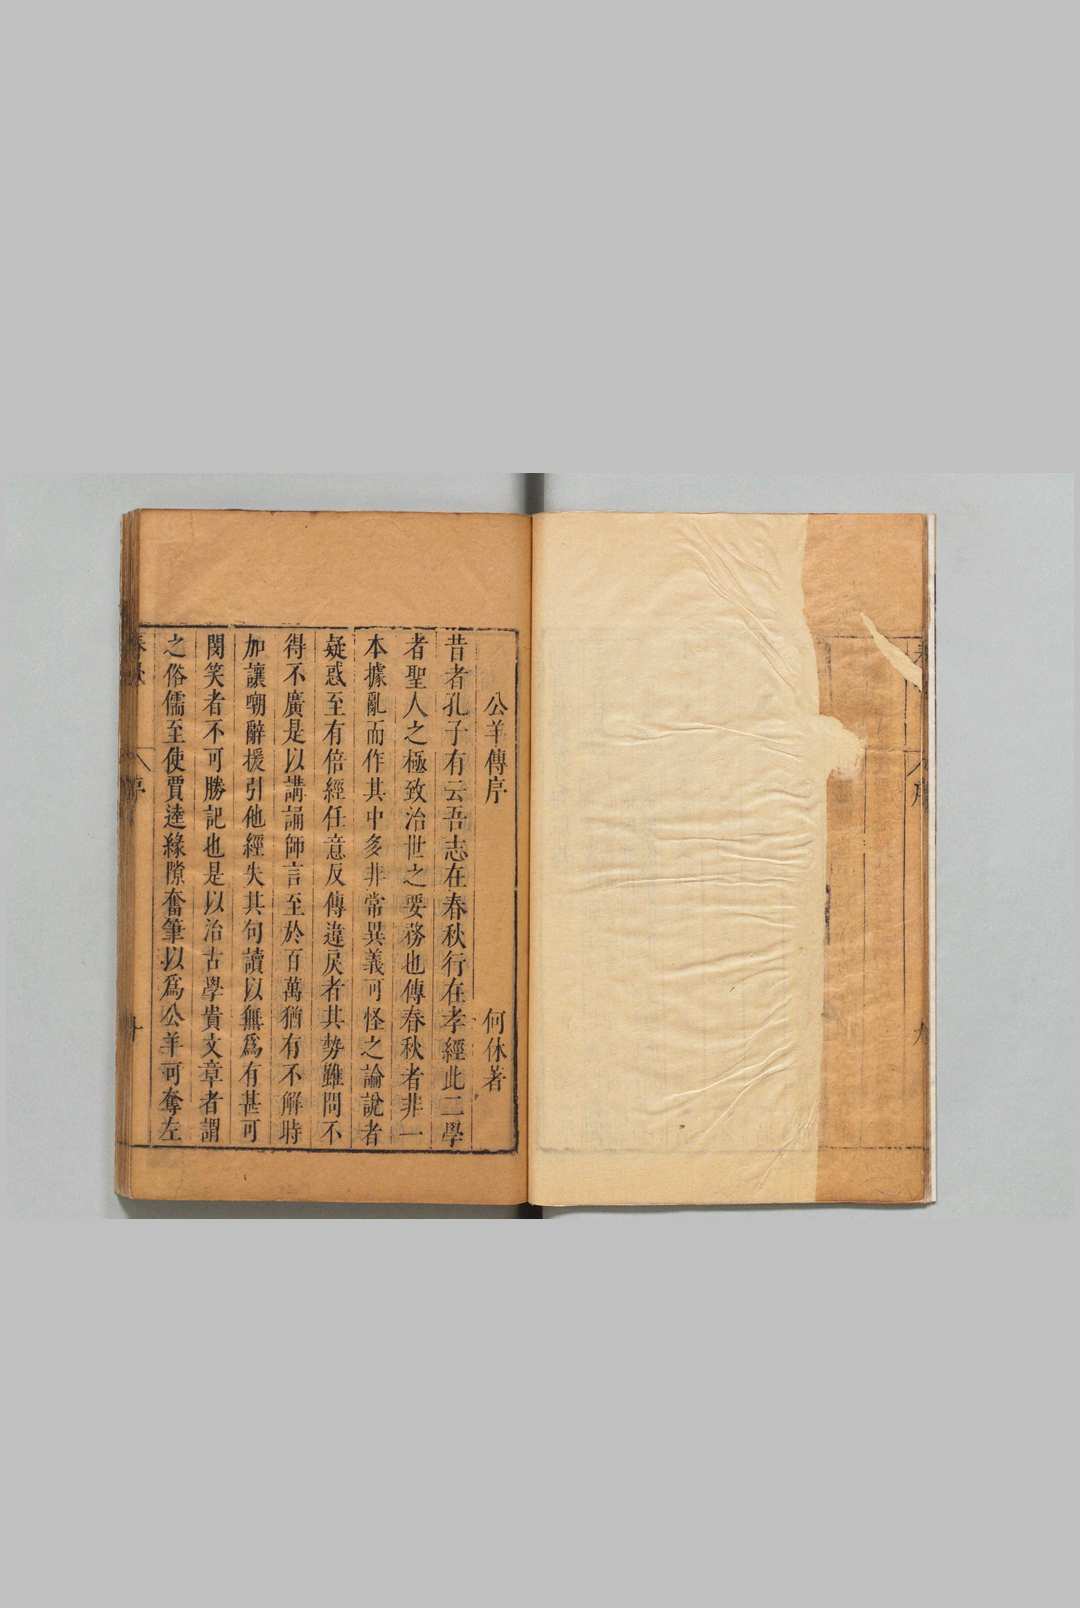 公羊傳序　何休著
昔者孔子有云吾志在春秋行在孝經此二學
者聖人之極致治世之要務也傳春秋者非一
本據亂而作其中多非常異義可怪之論說者
疑惑至有倍經任意反傳違戾者其勢雖問不
得不廣是以講誦師言至於百萬猶有不解時
加讓嘲辭援引他經失其句讀以無為有甚可
閔笑者不可勝記也是以治古學貴文章者謂
之俗儒至使賈逵緣隙奮筆以為公羊可奪左
序
序